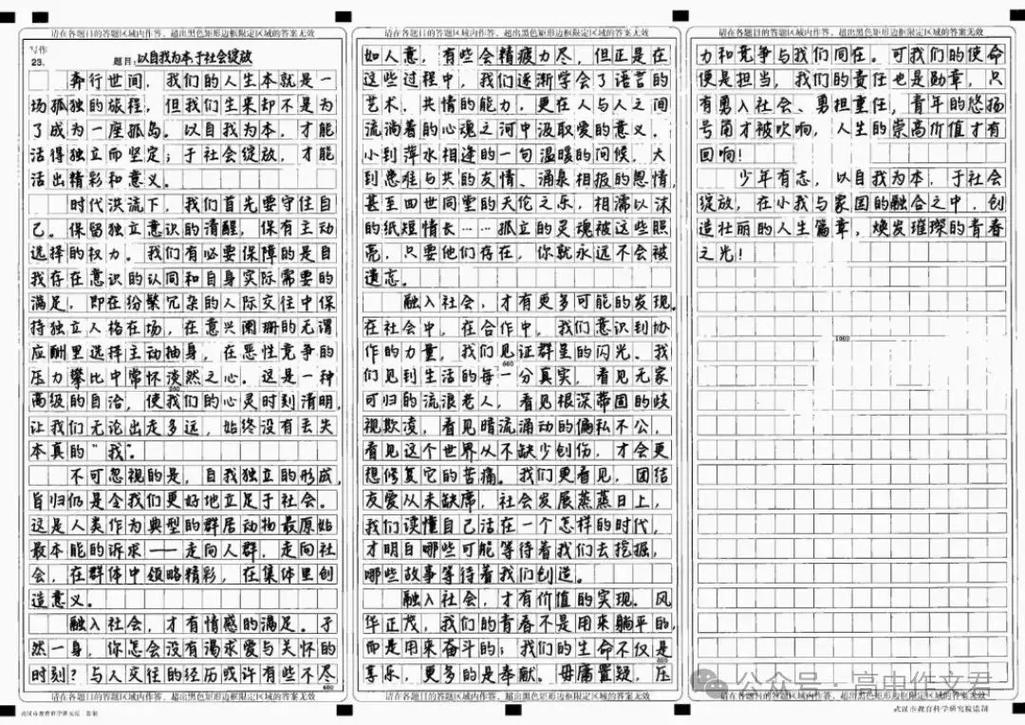 请在各题目的答题区域内作答，超出黑色矩形边框限定区域的答案无效
写作
23.
题目：以自我为本 于社会绽放
奔行世间，我们的人生本就是一
场孤独的旅程，但我们生来却不是为
了成为一座孤岛。以自我为本，才能
活得独立而坚定；于社会绽放，才能
活出精彩和意义。
时代洪流下，我们首先要守住自
己。保留独立意识的清醒，保有主动
选择的权力。我们有必要保障的是自
我存在意识的认同和自身实际需要的
满足，即在纷繁冗杂的人际交往中保
持独立人格在场，在意兴阑珊的无谓
应酬里选择主动抽身，在恶性竞争的
压力攀比中常怀淡然之心。这是一种
200
高级的自洽，使我们的心灵时刻清明，
让我们无论出走多远，始终没有丢失
本真的“我”。
不可忽视的是，自我独立的形成，
旨归仍是令我们更好地立足于社会。
这是人类作为典型的群居动物最原始
最本能的诉求——走向人群，走向社
会，在群体中领略精彩，在集体里创
造意义。
融入社会，才有情感的满足。孑
然一身，你怎会没有渴求爱与关怀的
时刻？与人交往的经历或许有些不尽
400
请在各题目的答题区域内作答，超出黑色矩形边框限定区域的答案无效
武汉市教育科学研究院 监制
请在各题目的答题区域内作答，超出黑色矩形边框限定区域的答案无效
如人意，有些会精疲力尽，但正是在
这些过程中，我们逐渐学会了语言的
艺术，共情的能力，更在人与人之间
流淌着的心魂之河中汲取爱的意义。
小到萍水相逢的一句温暖的问候，大
到患难与共的友情、涌泉相报的恩情，
甚至四世同堂的天伦之乐，相濡以沫
的纸短情长……孤立的灵魂被这些照
亮，只要他们存在，你就永远不会被
遗忘。
融入社会，才有更多可能的发现。
在社会中，在合作中，我们意识到协
作的力量，我们见证群星的闪光。我
600
们见到生活的每一分真实，看见无家
可归的流浪老人，看见根深蒂固的歧
视欺凌，看见暗流涌动的偏私不公，
看见这个世界从不缺少创伤，才会更
想修复它的苦痛。我们更看见，团结
友爱从未缺席，社会发展蒸蒸日上，
我们读懂自己活在一个怎样的时代，
才明白哪些可能等待着我们去挖掘，
哪些故事等待着我们创造。
融入社会，才有价值的实现。风
华正茂，我们的青春不是用来躺平的，
而是用来奋斗的；我们的生命不仅是
800
享乐，更多的是奉献。毋庸置疑，压
请在各题目的答题区域内作答，超出黑色矩形边框限定区域的答案无效
请在各题目的答题区域内作答，超出黑色矩形边框限定区域的答案无效
力和竞争与我们同在。可我们的使命
便是担当，我们的责任也是勋章，只
有勇入社会、勇担重任，青年的悠扬
号角才被吹响，人生的崇高价值才有
回响！
少年有志，以自我为本，于社会
绽放，在小我与家国的融合之中，创
造壮丽的人生篇章，焕发璀璨的青春
之光！
1000
公众号·高由作文君
请在各题目的答题区域内作答，超出黑色矩形边框限定区域的答案无效
武汉市教育科学研究院监制